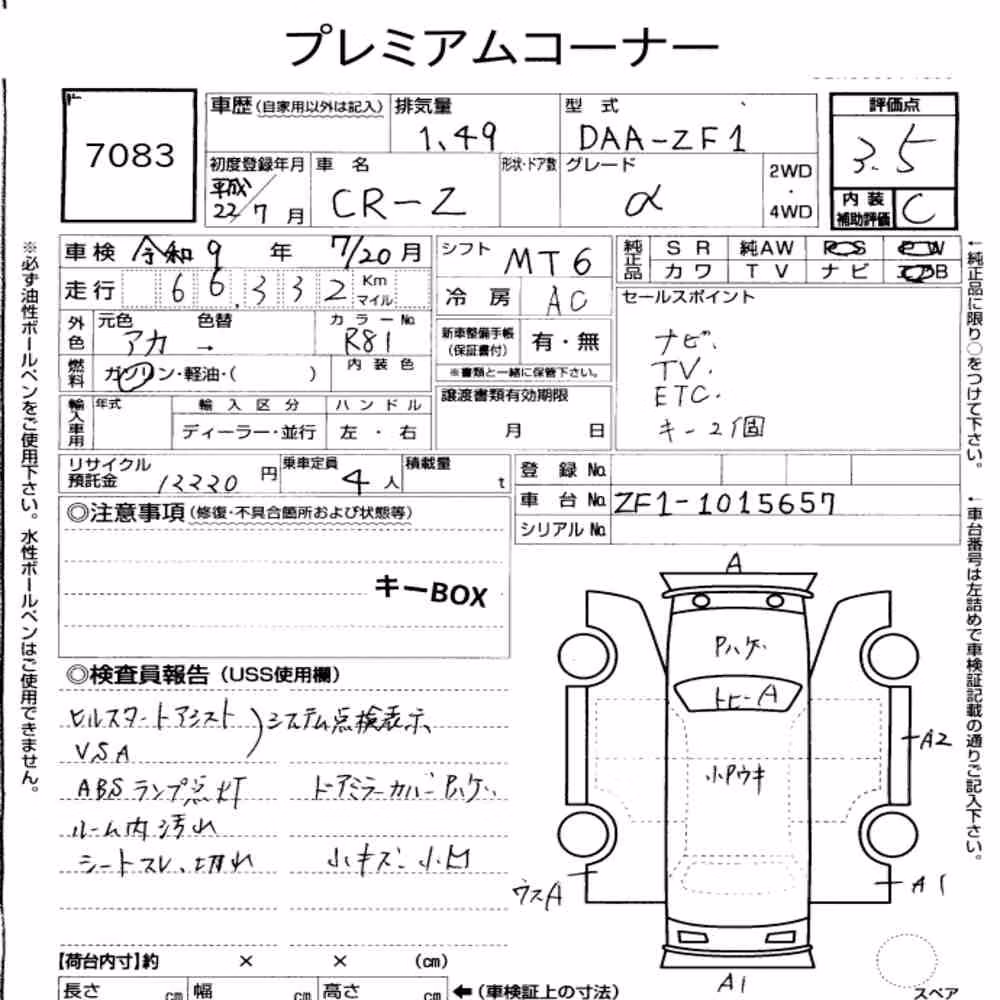 プレミアムコーナー
7083
車歴（自家用以外は記入）
排気量
1.49
型 式
DAA-ZF1
評価点
3.5
初度登録年月
平成
22/7月
車 名
CR-Z
形状・ドア数
グレード
α
2WD
・
4WD
内 装
補助評価
C
車検 令和9年 7/20月
シフト
MT6
純正品
SR 純AW PS PW
カワ TV ナビ エアB
走行 66,332 Km
マイル
冷 房
AC
セールスポイント
ナビ.
TV.
ETC.
キー2個
外色
元色 色替 カラーNo.
アカ → R81
新車整備手帳
（保証書付）
有・無
※書類と一緒に保管下さい。
燃料
ガソリン・軽油・( )
内 装 色
譲渡書類有効期限
月 日
輸入車用
年式 輸 入 区 分 ハ ン ド ル
ディーラー・並行 左 ・ 右
リサイクル
預託金
12220円
乗車定員
4人
積載量
t
登 録 No.
車 台 No.
ZF1-1015657
シリアル No.
◎注意事項（修復・不具合箇所および状態等）
キーBOX
◎検査員報告（USS使用欄）
ヒルスタートアシスト
VSA
）システム点検表示
ABSランプ点灯
ドアミラーカバーPハゲ.
ルーム内汚れ
シートスレ、切れ
小キズ、小凹
A
Pハゲ.
トビーA
小Pウキ
A2
ウスA
A1
A1
スペア
【荷台内寸】約 × × (cm)
長さ cm 幅 cm 高さ cm
←（車検証上の寸法）
※必ず油性ボールペンをご使用下さい。水性ボールペンはご使用できません。
←純正品に限り○をつけて下さい。
←車台番号は左詰めで車検証記載の通りご記入下さい。